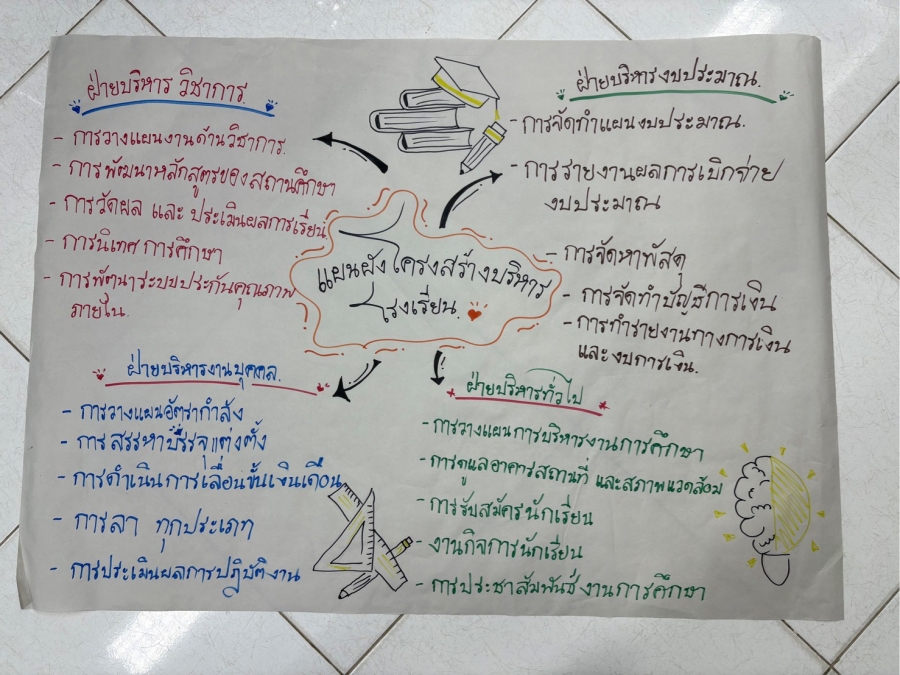 ฝ่ายบริหาร วิชาการ.
- การวางแผนงานด้านวิชาการ.
- การพัฒนาหลักสูตรของสถานศึกษา
- การวัดผล และ ประเมินผลการเรียน
- การนิเทศ การศึกษา
- การพัฒนาระบบประกันคุณภาพ
ภายใน.
ฝ่ายบริหารงบประมาณ.
- การจัดทำแผนงบประมาณ.
- การรายงานผลการเบิกจ่าย
งบประมาณ
- การจัดหาพัสดุ
- การจัดทำบัญชีการเงิน
- การทำรายงานทางการเงิน
และงบการเงิน.
แผนผังโครงสร้างบริหาร
โรงเรียน.
ฝ่ายบริหารงานบุคคล.
- การวางแผนอัตรากำลัง
- การสรรหาบรรจุแต่งตั้ง
- การดำเนินการเลื่อนขั้นเงินเดือน
- การลา ทุกประเภท
- การประเมินผลการปฏิบัติงาน
ฝ่ายบริหารทั่วไป
- การวางแผนการบริหารงานการศึกษา
- การดูแลอาคารสถานที่ และสภาพแวดล้อม
- การรับสมัครนักเรียน
- งานกิจการนักเรียน
- การประชาสัมพันธ์งานการศึกษา